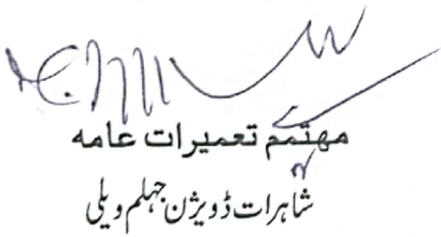 مہتمم تعمیرات عامہ
شاہرات ڈویژن جہلم ویلی